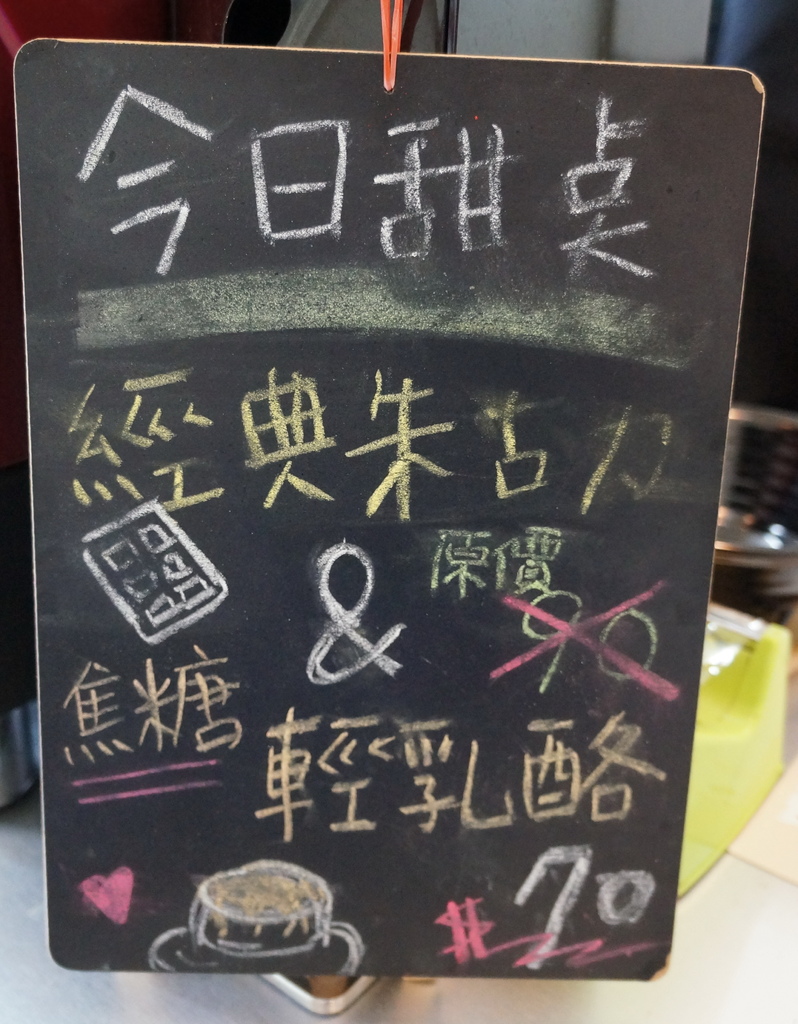 今日甜点
經典朱古力
&
原價
90
焦糖
輕乳酪
$70